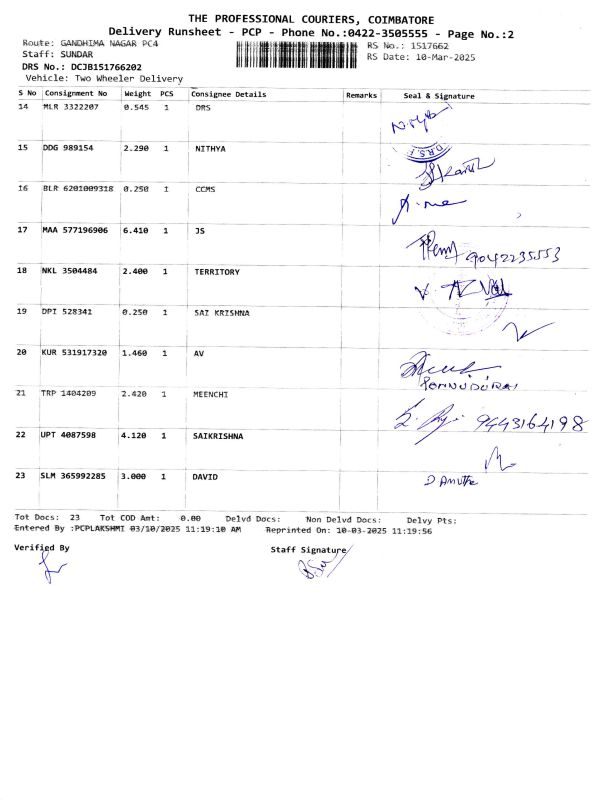 THE PROFESSIONAL COURIERS, COIMBATORE
Delivery Runsheet - PCP - Phone No.:0422-3505555 - Page No.:2
Route: GANDHIMA NAGAR PC4
RS No.: 1517662
Staff: SUNDAR
RS Date: 10-Mar-2025
DRS No.: DCJB151766202
Vehicle: Two Wheeler Delivery
S No Consignment No Weight PCS Consignee Details Remarks Seal & Signature
14 MLR 3322207 0.545 1 DRS
15 DDG 989154 2.290 1 NITHYA
16 BLR 6201009318 0.250 1 CCMS
17 MAA 577196906 6.410 1 JS 9042235553
18 NKL 3504484 2.400 1 TERRITORY
19 DPI 528341 0.250 1 SAI KRISHNA
20 KUR 531917320 1.460 1 AV
PONNUDURAI
21 TRP 1404209 2.420 1 MEENCHI 9443164198
22 UPT 4087598 4.120 1 SAIKRISHNA
23 SLM 365992285 3.000 1 DAVID
Tot Docs: 23 Tot COD Amt: 0.00 Delvd Docs: Non Delvd Docs: Delvy Pts:
Entered By :PCPLAKSHMI 03/10/2025 11:19:10 AM Reprinted On: 10-03-2025 11:19:56
Verified By Staff Signature